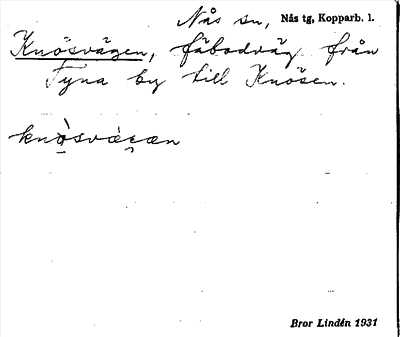 Nås sn, Nås tg, Kopparb. l.
Knösvägen, fäbodväg från
Tyna by till Knösen.
Bror Lindén 1931